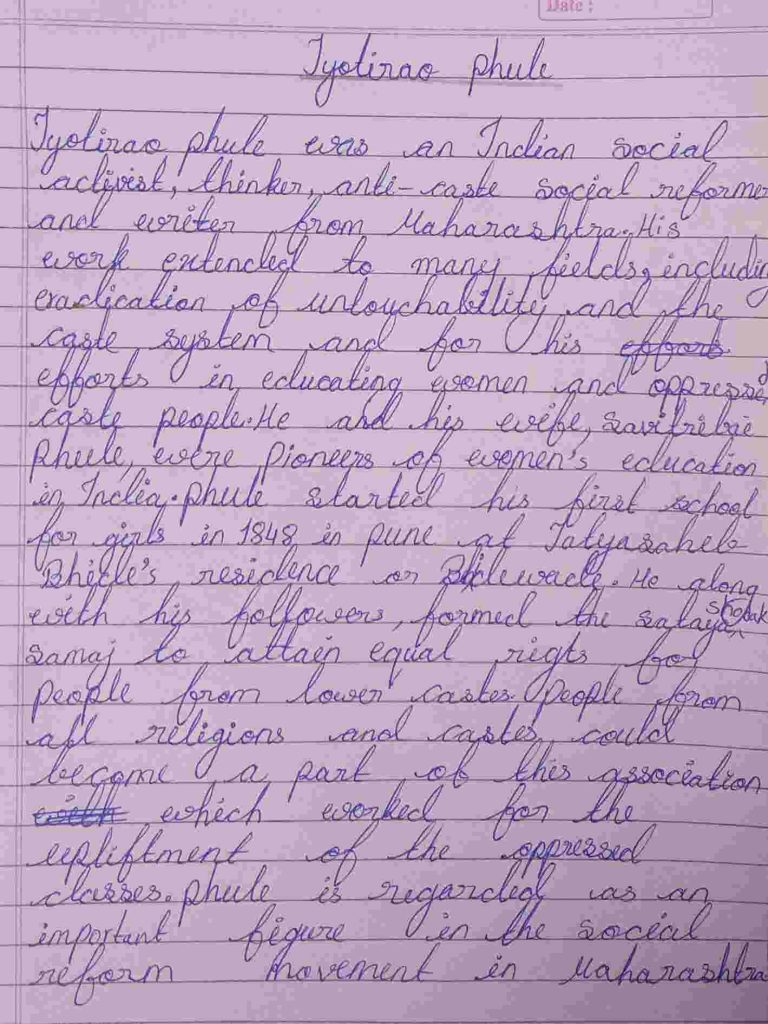 Date :
Jyotirao phule
Jyotirao phule was an Indian social
activist, thinker, anti-caste social reformer
and writer from Maharashtra. His
work extended to many fields, including
eradication of untouchability and the
caste system and for his efforts
efforts in educating women and oppressed
caste people. He and his wife, Savitribie
Phule, were Pioneers of women's education
in India. phule started his first school
for girls in 1848 in pune at Tatyasaheb
Bhide's residence or He along
with his followers, formed the Satayashodak
Samaj to attain equal rigts for
people from lower castes. People from
all religions and castes could
become a part of this association
with which worked for the
upliftment of the oppressed
classes. phule is regarded as an
important figure in the social
reform movement in Maharashtra